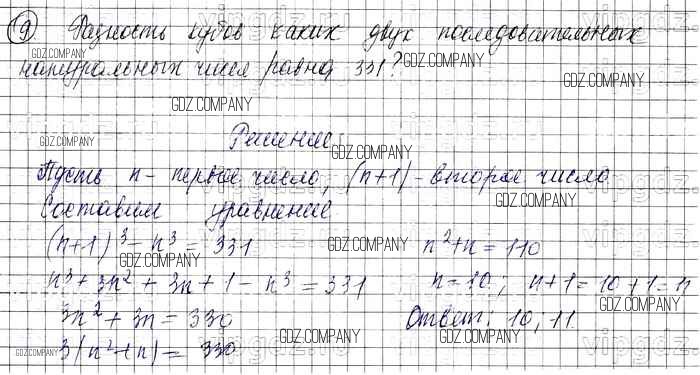 9) Разность кубов каких двух последовательных
натуральных чисел равна 331?
Решение:
Пусть n - первое число, (n+1) - второе число
Составим уравнение
(n+1)³ - n³ = 331
n³ + 3n² + 3n + 1 - n³ = 331
3n² + 3n = 330
3(n² + n) = 330
n² + n = 110
n = 10; n+1 = 10+1 = 11
Ответ: 10; 11.
GDZ.COMPANY
GDZ.COMPANY
GDZ.COMPANY
GDZ.COMPANY
GDZ.COMPANY
GDZ.COMPANY
GDZ.COMPANY
GDZ.COMPANY
GDZ.COMPANY
GDZ.COMPANY
GDZ.COMPANY
GDZ.COMPANY